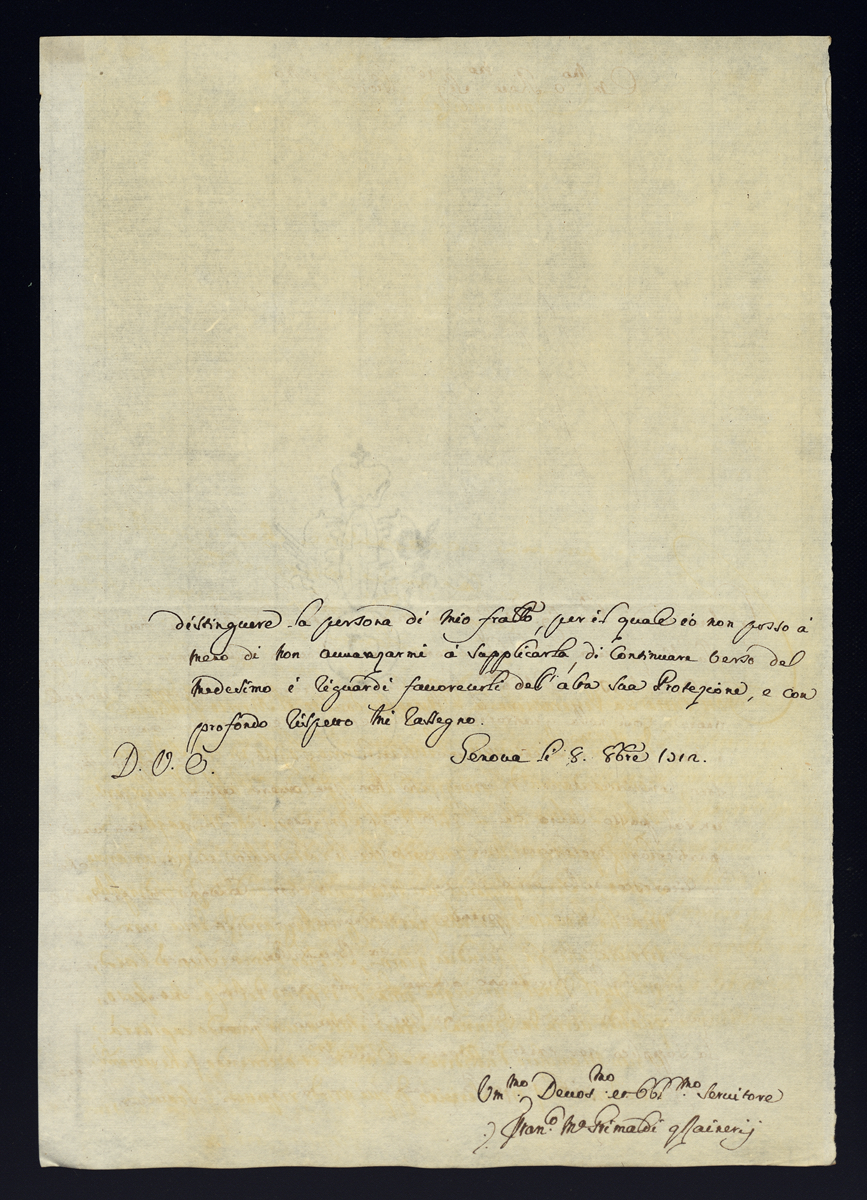 distinguere la persona di mio fratto, per il quale io non posso á
meno di non auuanzarmi á supplicarla, di Continuare verso del
medesimo i riguardi fauoreuoli dell'alta sua Protezione, e con
profondo rispetto mi rassegno.
D. V. E. Genoua li 8. 8bre 1712.
Um.mo Deuos.mo et Obl.mo seruitore
Fran.o Ma Grimaldi q Rainerij